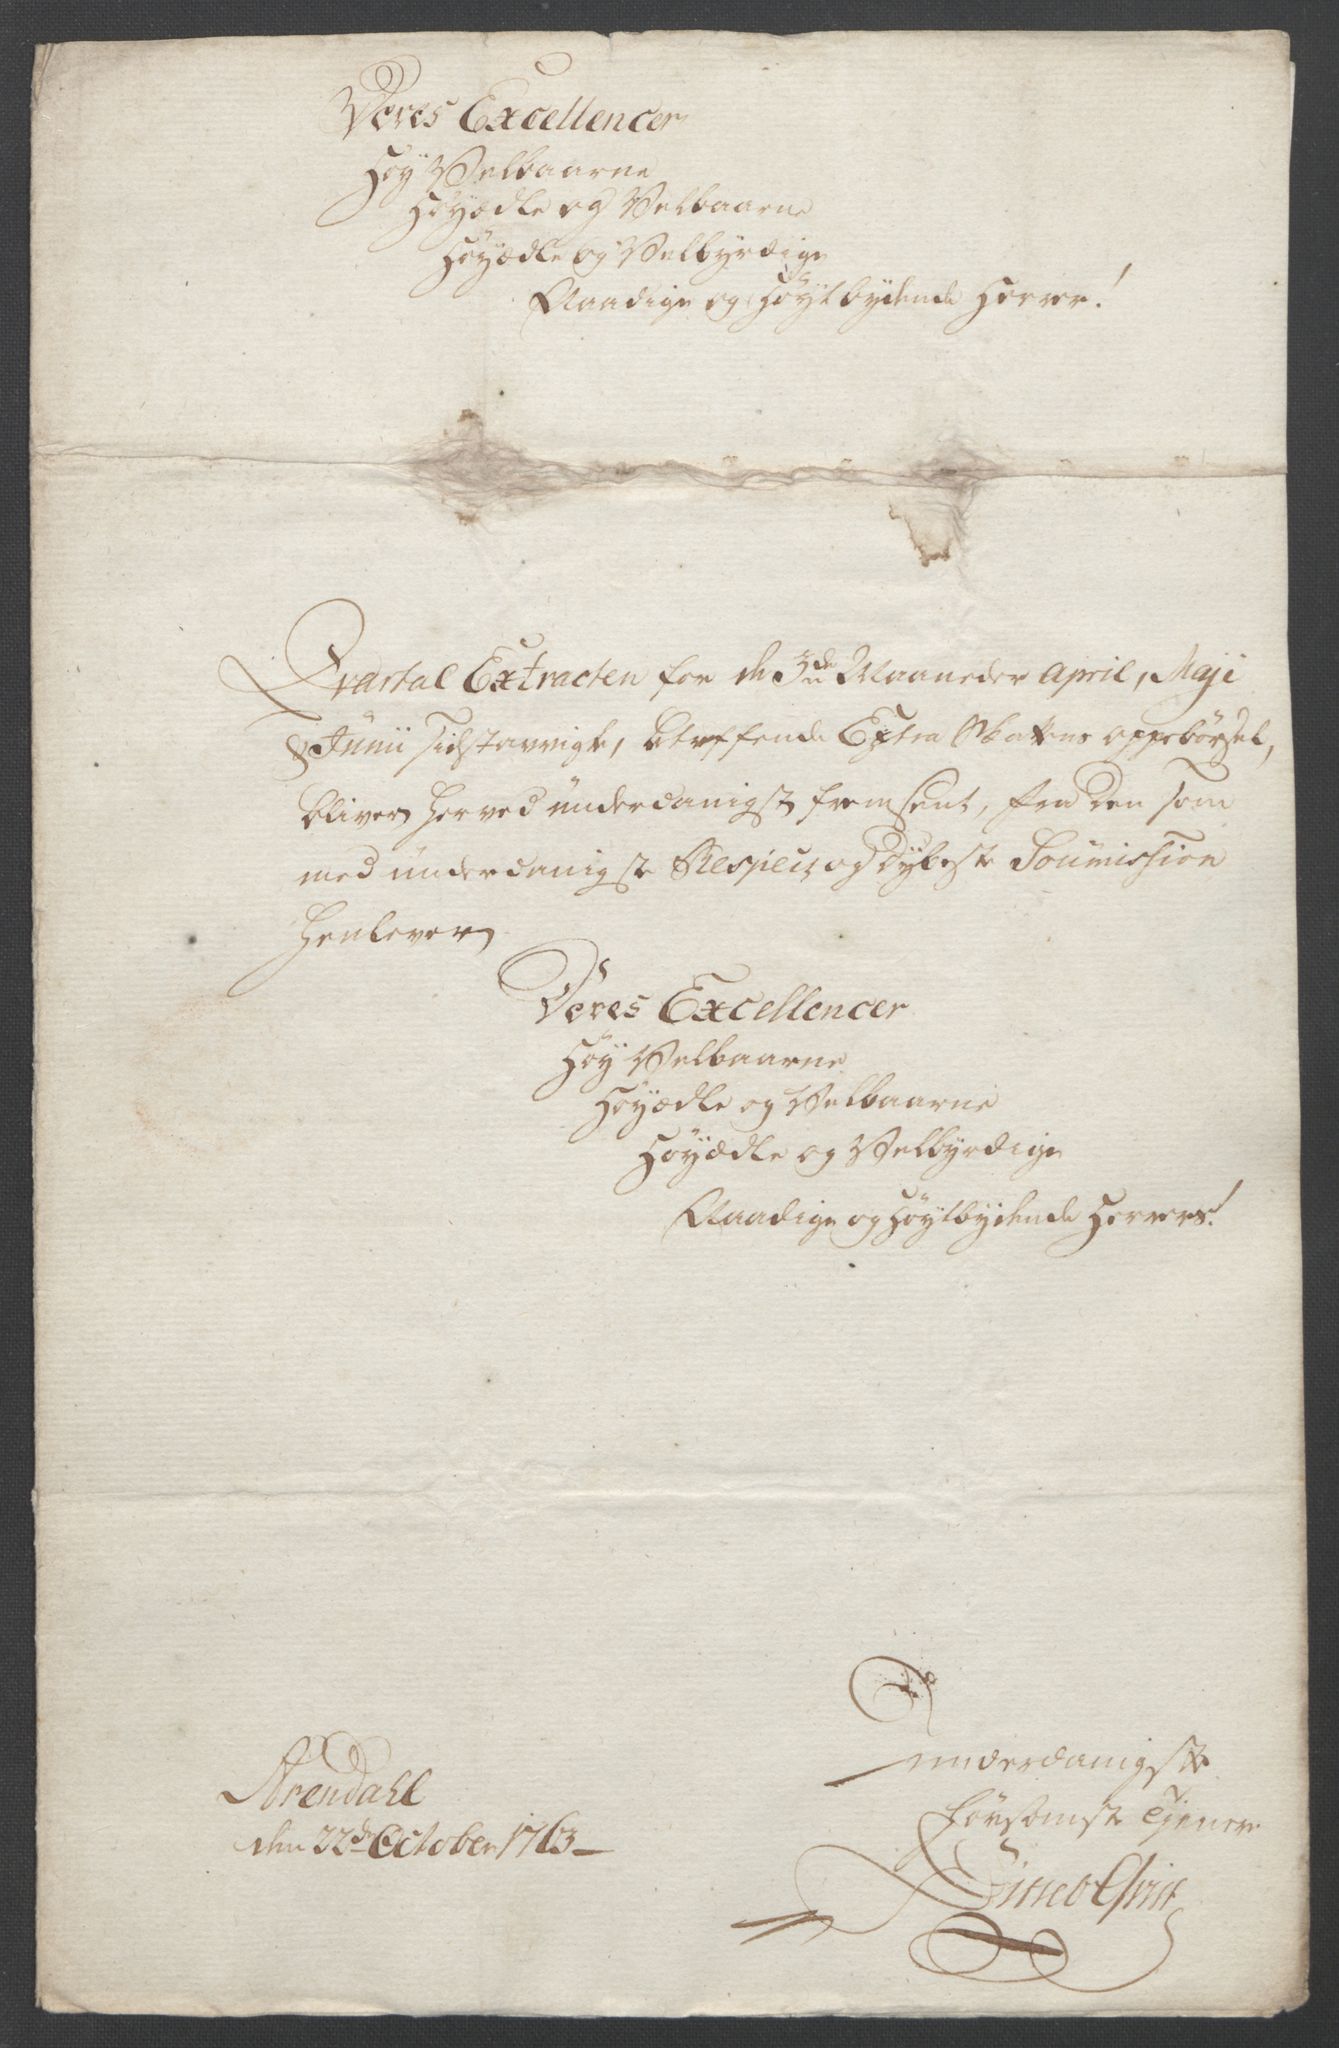 Deres Excellencer
Høy Velbaarne
Høyædle og Velbaarne
Høyædle og Velbyrdige
Naadige og Høytbydende Herrer!
Qvartal Extracten for de 3de Maaneder April, Maji
& Junii sidstavvigte, betreffende Extra Skattens oppebørsel,
bliver herved underdanigst fremsent, fra den som
med underdanigste Respect og dybeste Soumission
henlever
Deres Excellencer
Høy Velbaarne
Høyædle og Velbaarne
Høyædle og Velbyrdige
Naadige og Høytbydende Herrers!
underdanigste
hørsomste Tjener
Arendahl
den 22de October 1763